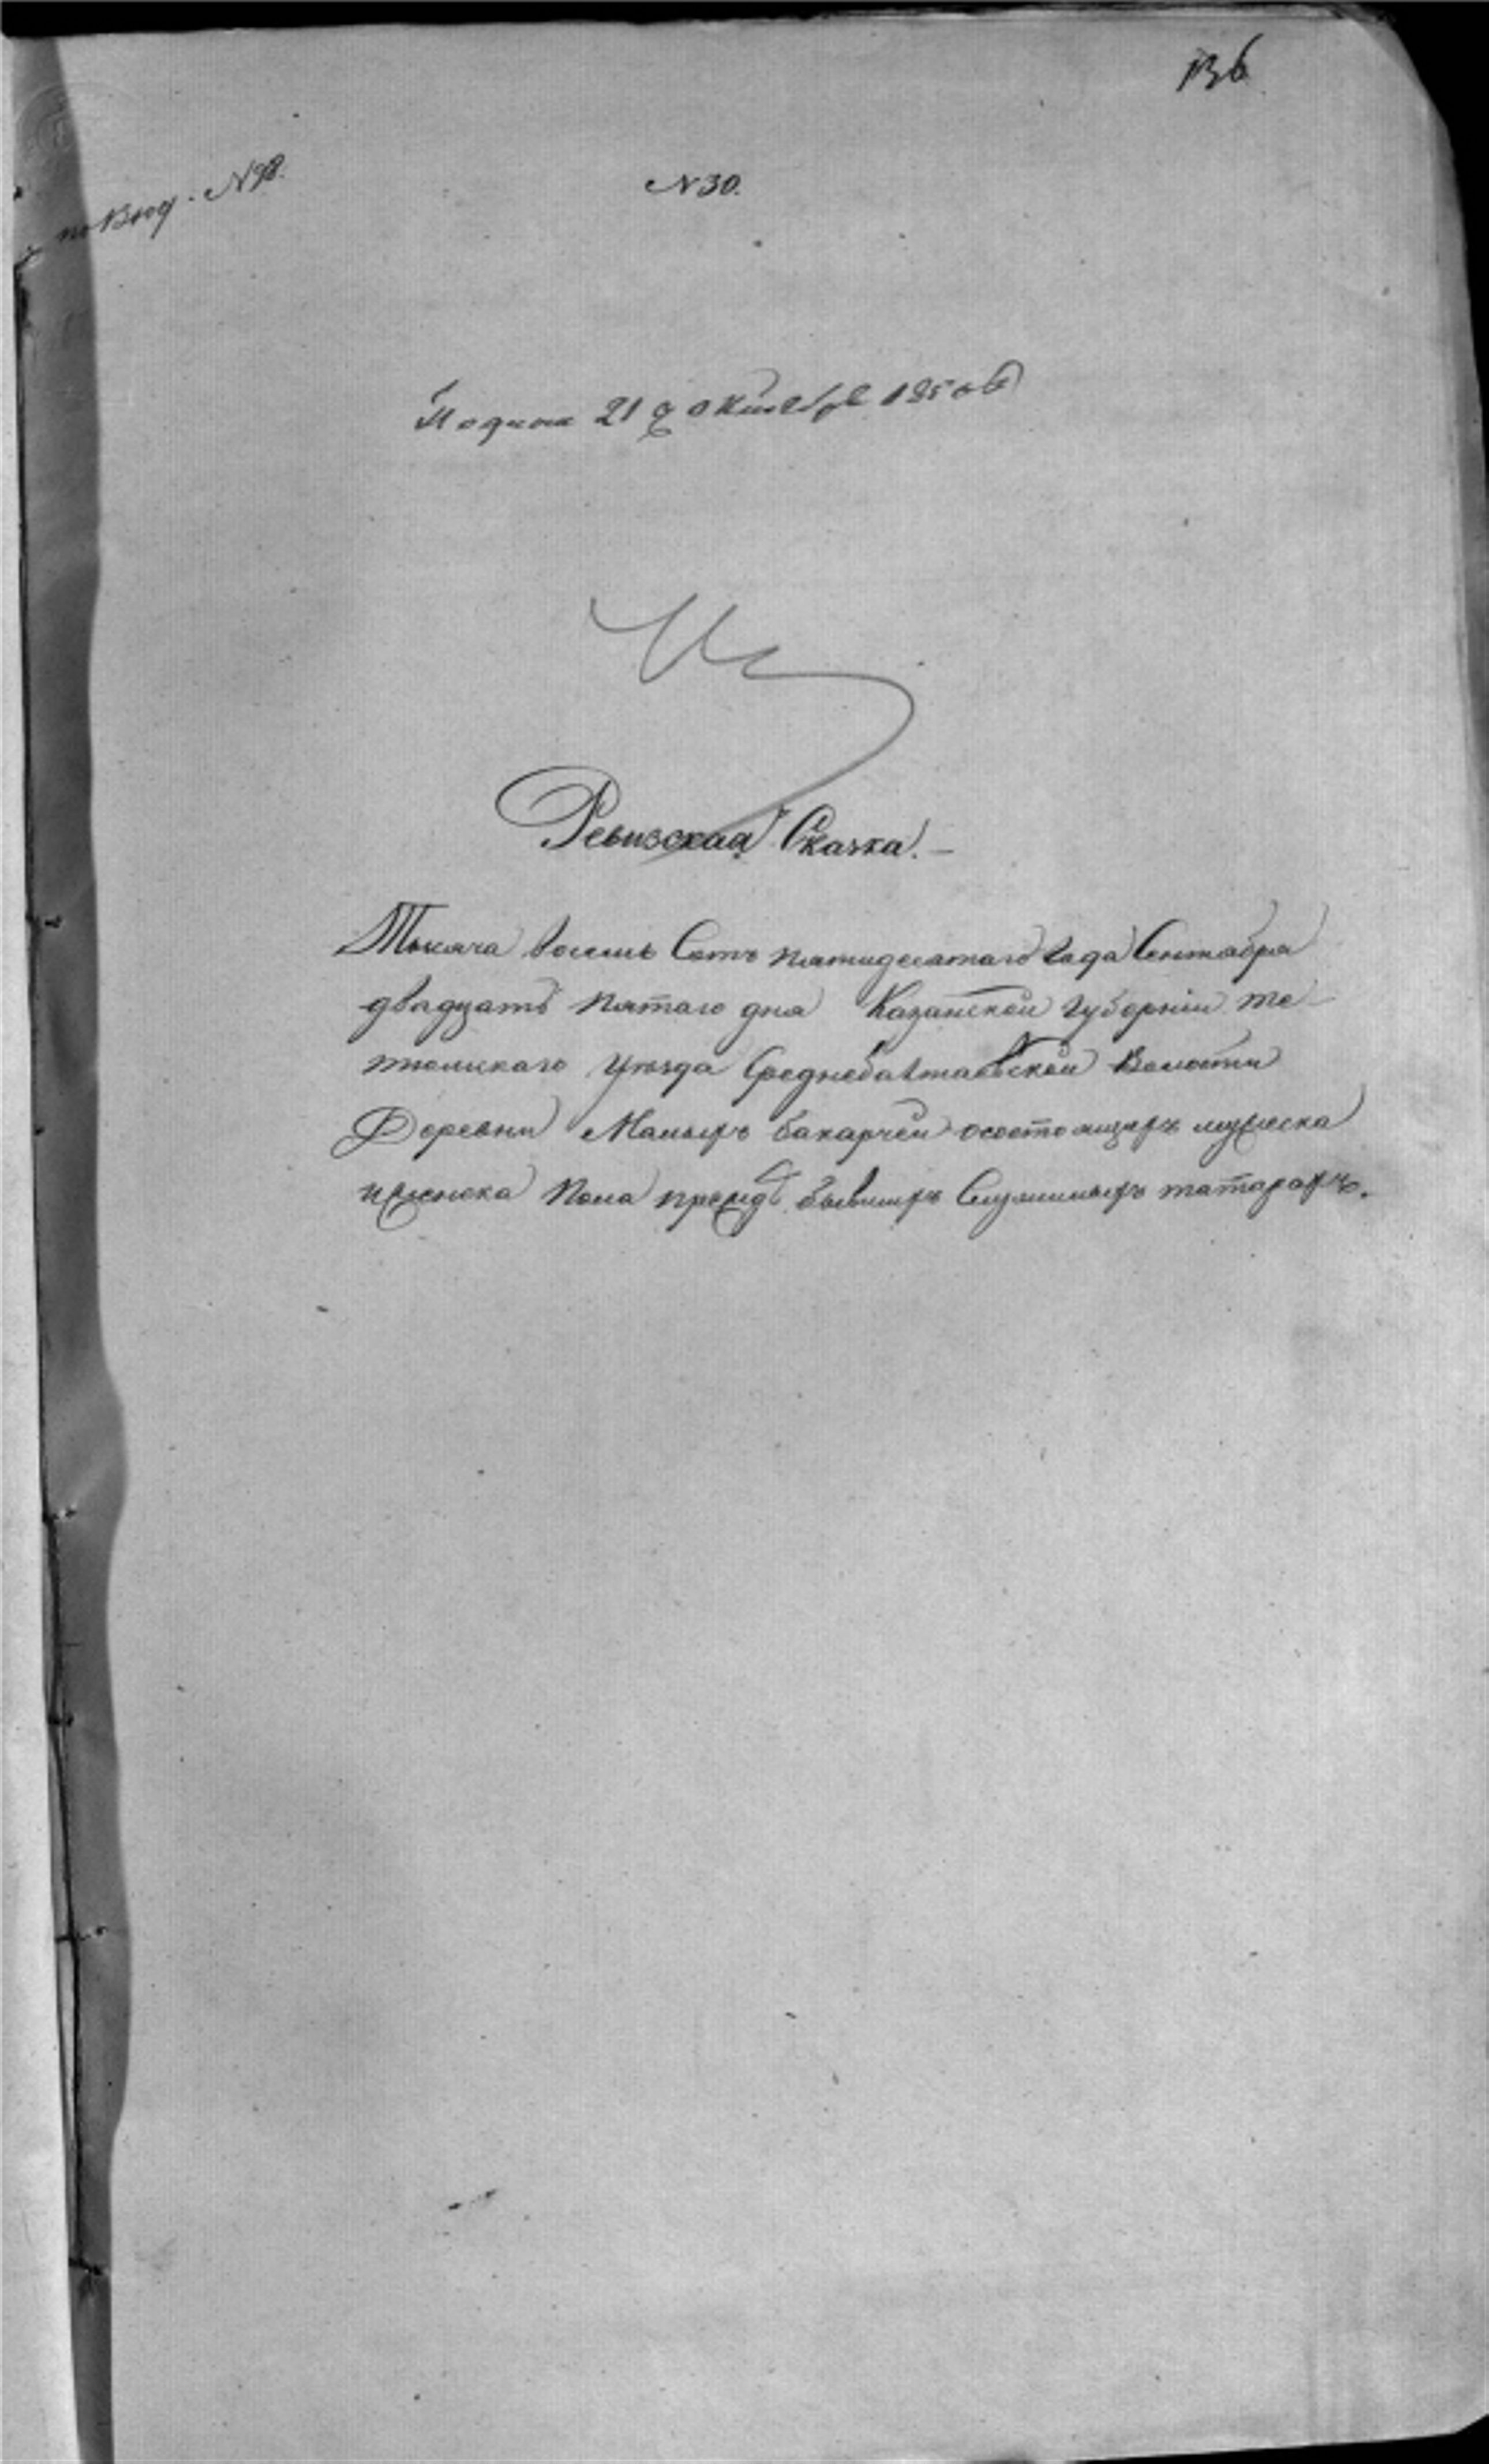 136
по Вход. № 98.
№ 30.
Подана 21 октября 1850 г
Ревизская Сказка. —
Тысяча восемь Сотъ пятидесятаго года Сентября
двадцать пятаго дня Казанской губерніи те-
тюшскаго уѣзда Среднебалтаевской Волости
Деревни Малыхъ бакарчей осостоящихъ мужеска
и женска пола прежде бывшихъ Служилыхъ татарахъ.